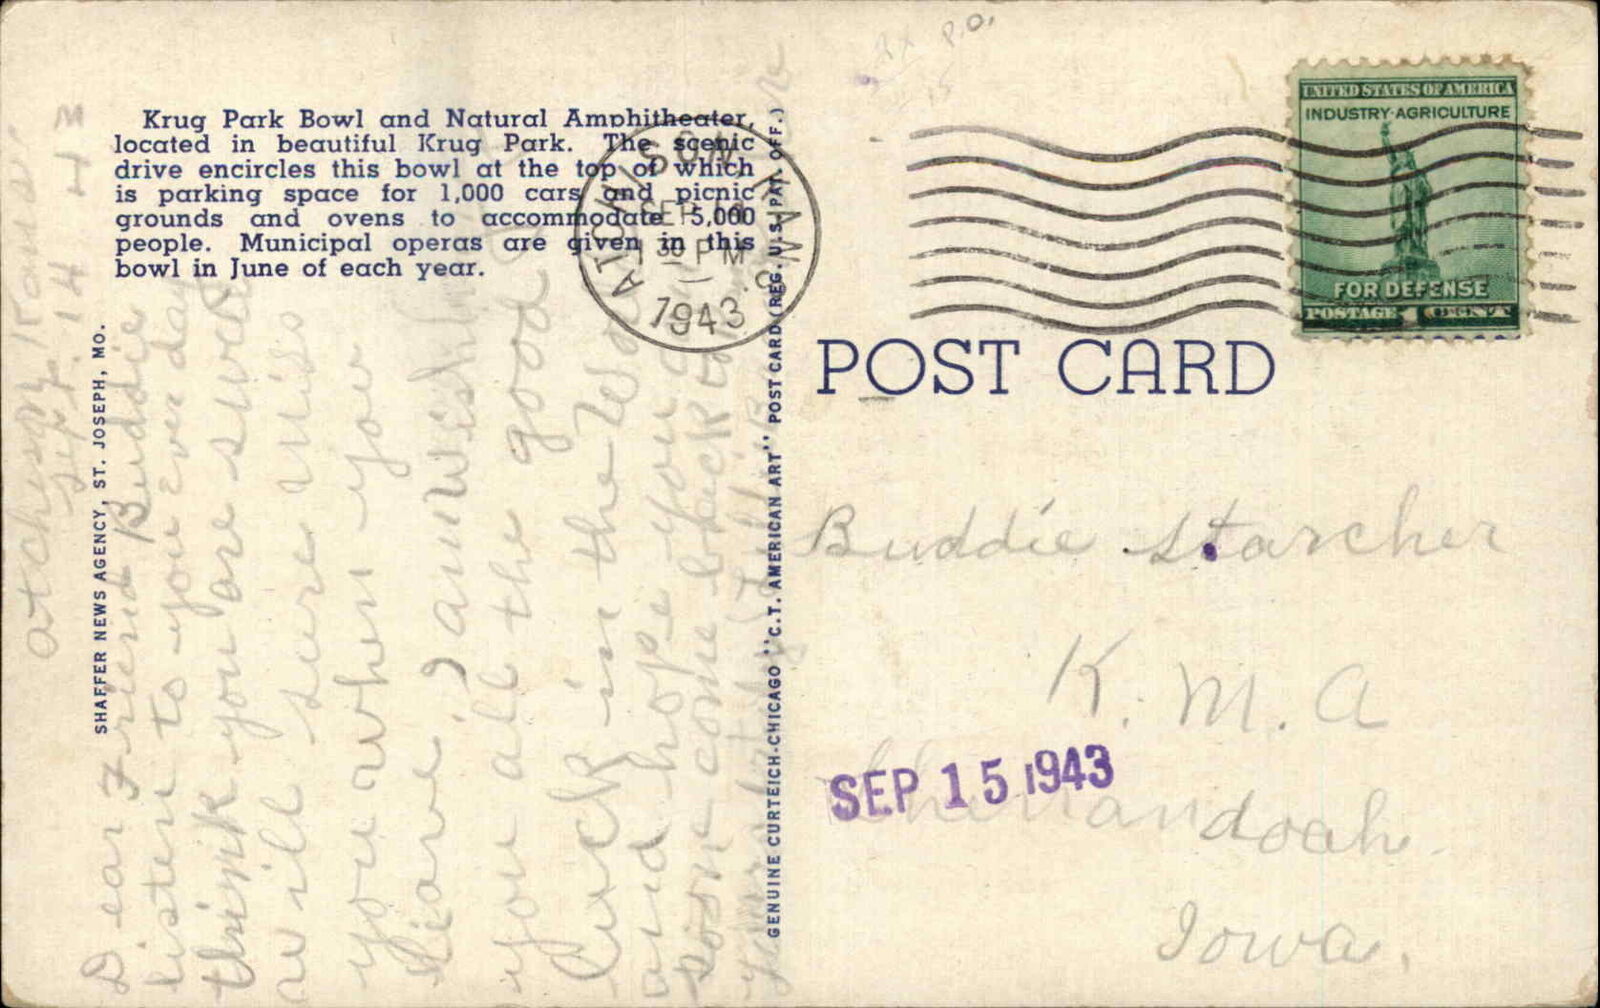 P.O.
Krug Park Bowl and Natural Amphitheater,
located in beautiful Krug Park. The scenic
drive encircles this bowl at the top of which
is parking space for 1,000 cars and picnic
grounds and ovens to accommodate 5,000
people. Municipal operas are given in this
bowl in June of each year.
SHAFFER NEWS AGENCY, ST. JOSEPH, MO.
Atchison, Kans.
Sept. 14 43
Dear Friend Buddie
listen to you ever day
think you are swell
will sure miss
you when you
leave I am wishing
you all the good
luck in the World
and hope you
soon come back to
GENUINE CURTEICH-CHICAGO "C.T. AMERICAN ART" POST CARD (REG. U.S. PAT. OFF.)
ATCHISON KANS.
SEP
1 30 PM
1943
UNITED STATES OF AMERICA
INDUSTRY·AGRICULTURE
FOR DEFENSE
POSTAGE 1 CENT
POST CARD
Buddie Starcher
K. M. A
SEP 15 1943
Shenandoah
Iowa.